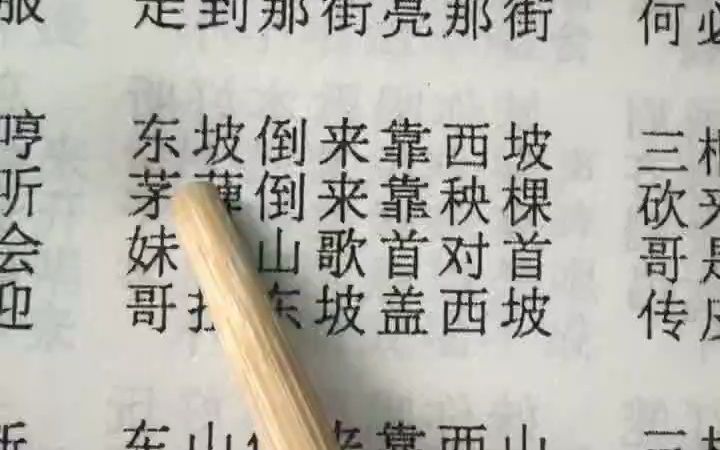 服 走到那街亮那街 何必
哼 东坡倒来靠西坡 三
听 茅 倒来靠秧棵 砍
会 妹 山歌首对首 哥是
迎 哥 东坡盖西坡 传
东山 来靠西山